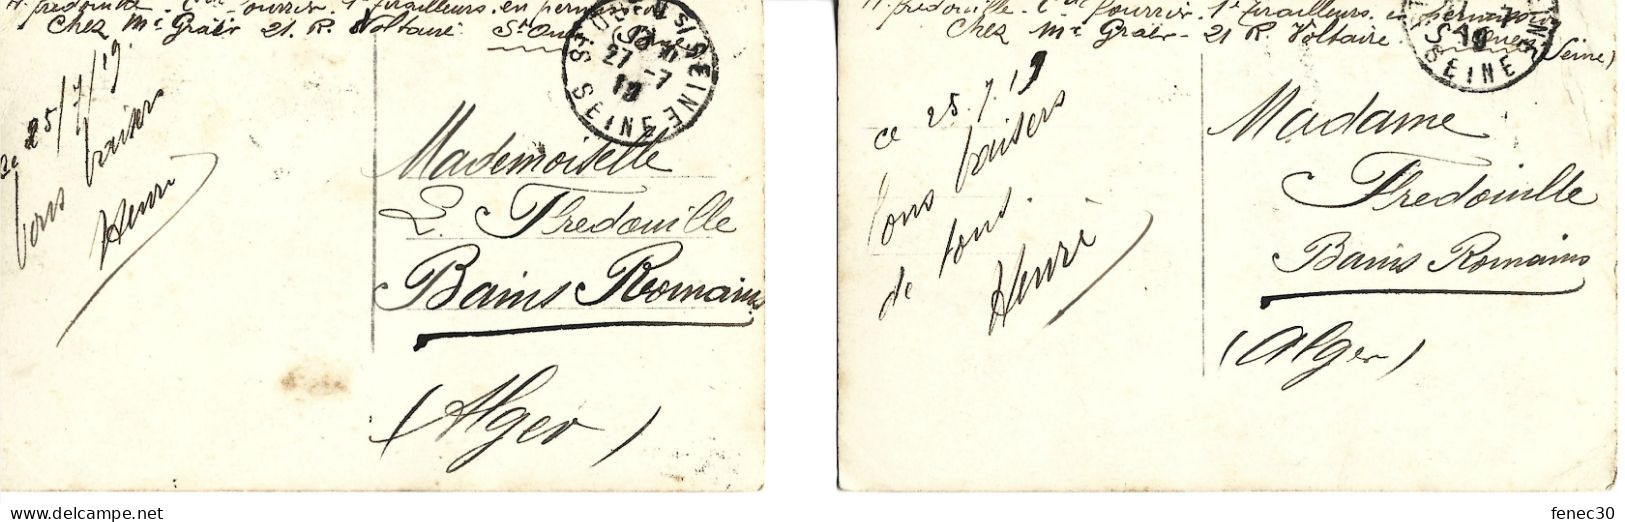 H. Fredouille. Cal fourrier. 1er Tirailleurs. en permission
Chez Mr Graër 21. R. Voltaire. St Ouen
27 -7
19
SEINE
ce 25/7/19
bons baisers
Henri
Mademoiselle
L. Fredouille
Bains Romains
(Alger)
H. Fredouille. Cal fourrier. 1er Tirailleurs en permission
Chez Mr Graër - 21 R. Voltaire. St Ouen (Seine)
19
SEINE
ce 25.7.19
bons baisers
de tous.
Henri
Madame
Fredouille
Bains Romains
(Alger)
www.delcampe.net
fenec30